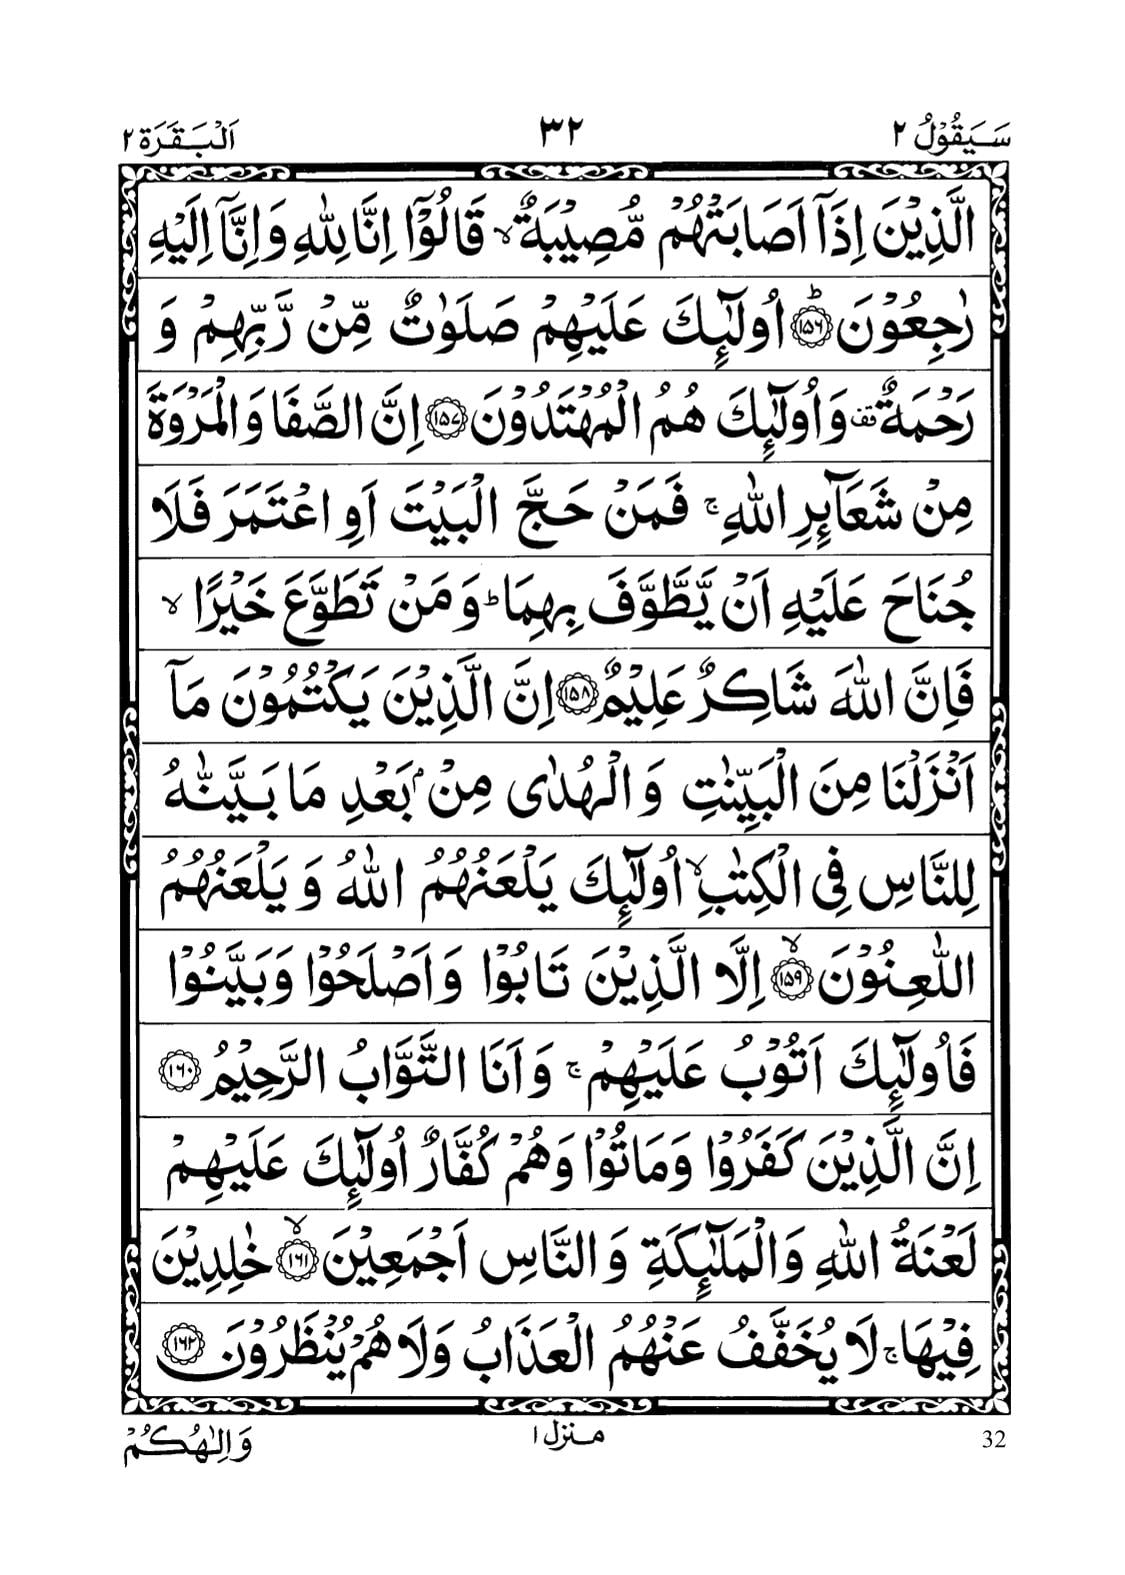 سَيَقُوۡلُ ٢
٣٢
اَلۡبَقَرَة ٢
الَّذِيۡنَ اِذَآ اَصَابَتۡهُمۡ مُّصِيۡبَةٌ ۙ قَالُوۡٓا اِنَّا لِلّٰهِ وَاِنَّآ اِلَيۡهِ
رٰجِعُوۡنَ ؕ‏﴿۱۵۶﴾ اُولٰٓٮِٕكَ عَلَيۡهِمۡ صَلَوٰتٌ مِّنۡ رَّبِّهِمۡ وَ
رَحۡمَةٌ ۟ قف وَاُولٰٓٮِٕكَ هُمُ الۡمُهۡتَدُوۡنَ ﴿۱۵۷﴾ اِنَّ الصَّفَا وَالۡمَرۡوَةَ
مِنۡ شَعَآٮِٕرِ اللّٰهِ ۚ فَمَنۡ حَجَّ الۡبَيۡتَ اَوِ اعۡتَمَرَ فَلَا
جُنَاحَ عَلَيۡهِ اَنۡ يَّطَّوَّفَ بِهِمَا ؕ وَمَنۡ تَطَوَّعَ خَيۡرًا ۙ
فَاِنَّ اللّٰهَ شَاكِرٌ عَلِيۡمٌ ﴿۱۵۸﴾ اِنَّ الَّذِيۡنَ يَكۡتُمُوۡنَ مَآ
اَنۡزَلۡنَا مِنَ الۡبَيِّنٰتِ وَالۡهُدٰى مِنۡۢ بَعۡدِ مَا بَيَّنّٰهُ
لِلنَّاسِ فِى الۡكِتٰبِ ۙ اُولٰٓٮِٕكَ يَلۡعَنُهُمُ اللّٰهُ وَ يَلۡعَنُهُمُ
اللّٰعِنُوۡنَ ۙ‏﴿۱۵۹﴾ اِلَّا الَّذِيۡنَ تَابُوۡا وَاَصۡلَحُوۡا وَبَيَّنُوۡا
فَاُولٰٓٮِٕكَ اَتُوۡبُ عَلَيۡهِمۡ ۚ وَاَنَا التَّوَّابُ الرَّحِيۡمُ ﴿۱۶۰﴾
اِنَّ الَّذِيۡنَ كَفَرُوۡا وَمَاتُوۡا وَهُمۡ كُفَّارٌ اُولٰٓٮِٕكَ عَلَيۡهِمۡ
لَعۡنَةُ اللّٰهِ وَالۡمَلٰٓٮِٕكَةِ وَالنَّاسِ اَجۡمَعِيۡنَ ۙ‏﴿۱۶۱﴾ خٰلِدِيۡنَ
فِيۡهَا ۚ لَا يُخَفَّفُ عَنۡهُمُ الۡعَذَابُ وَلَا هُمۡ يُنۡظَرُوۡنَ ﴿۱۶۲﴾
32
منزل ١
وَاِلٰهُكُمۡ